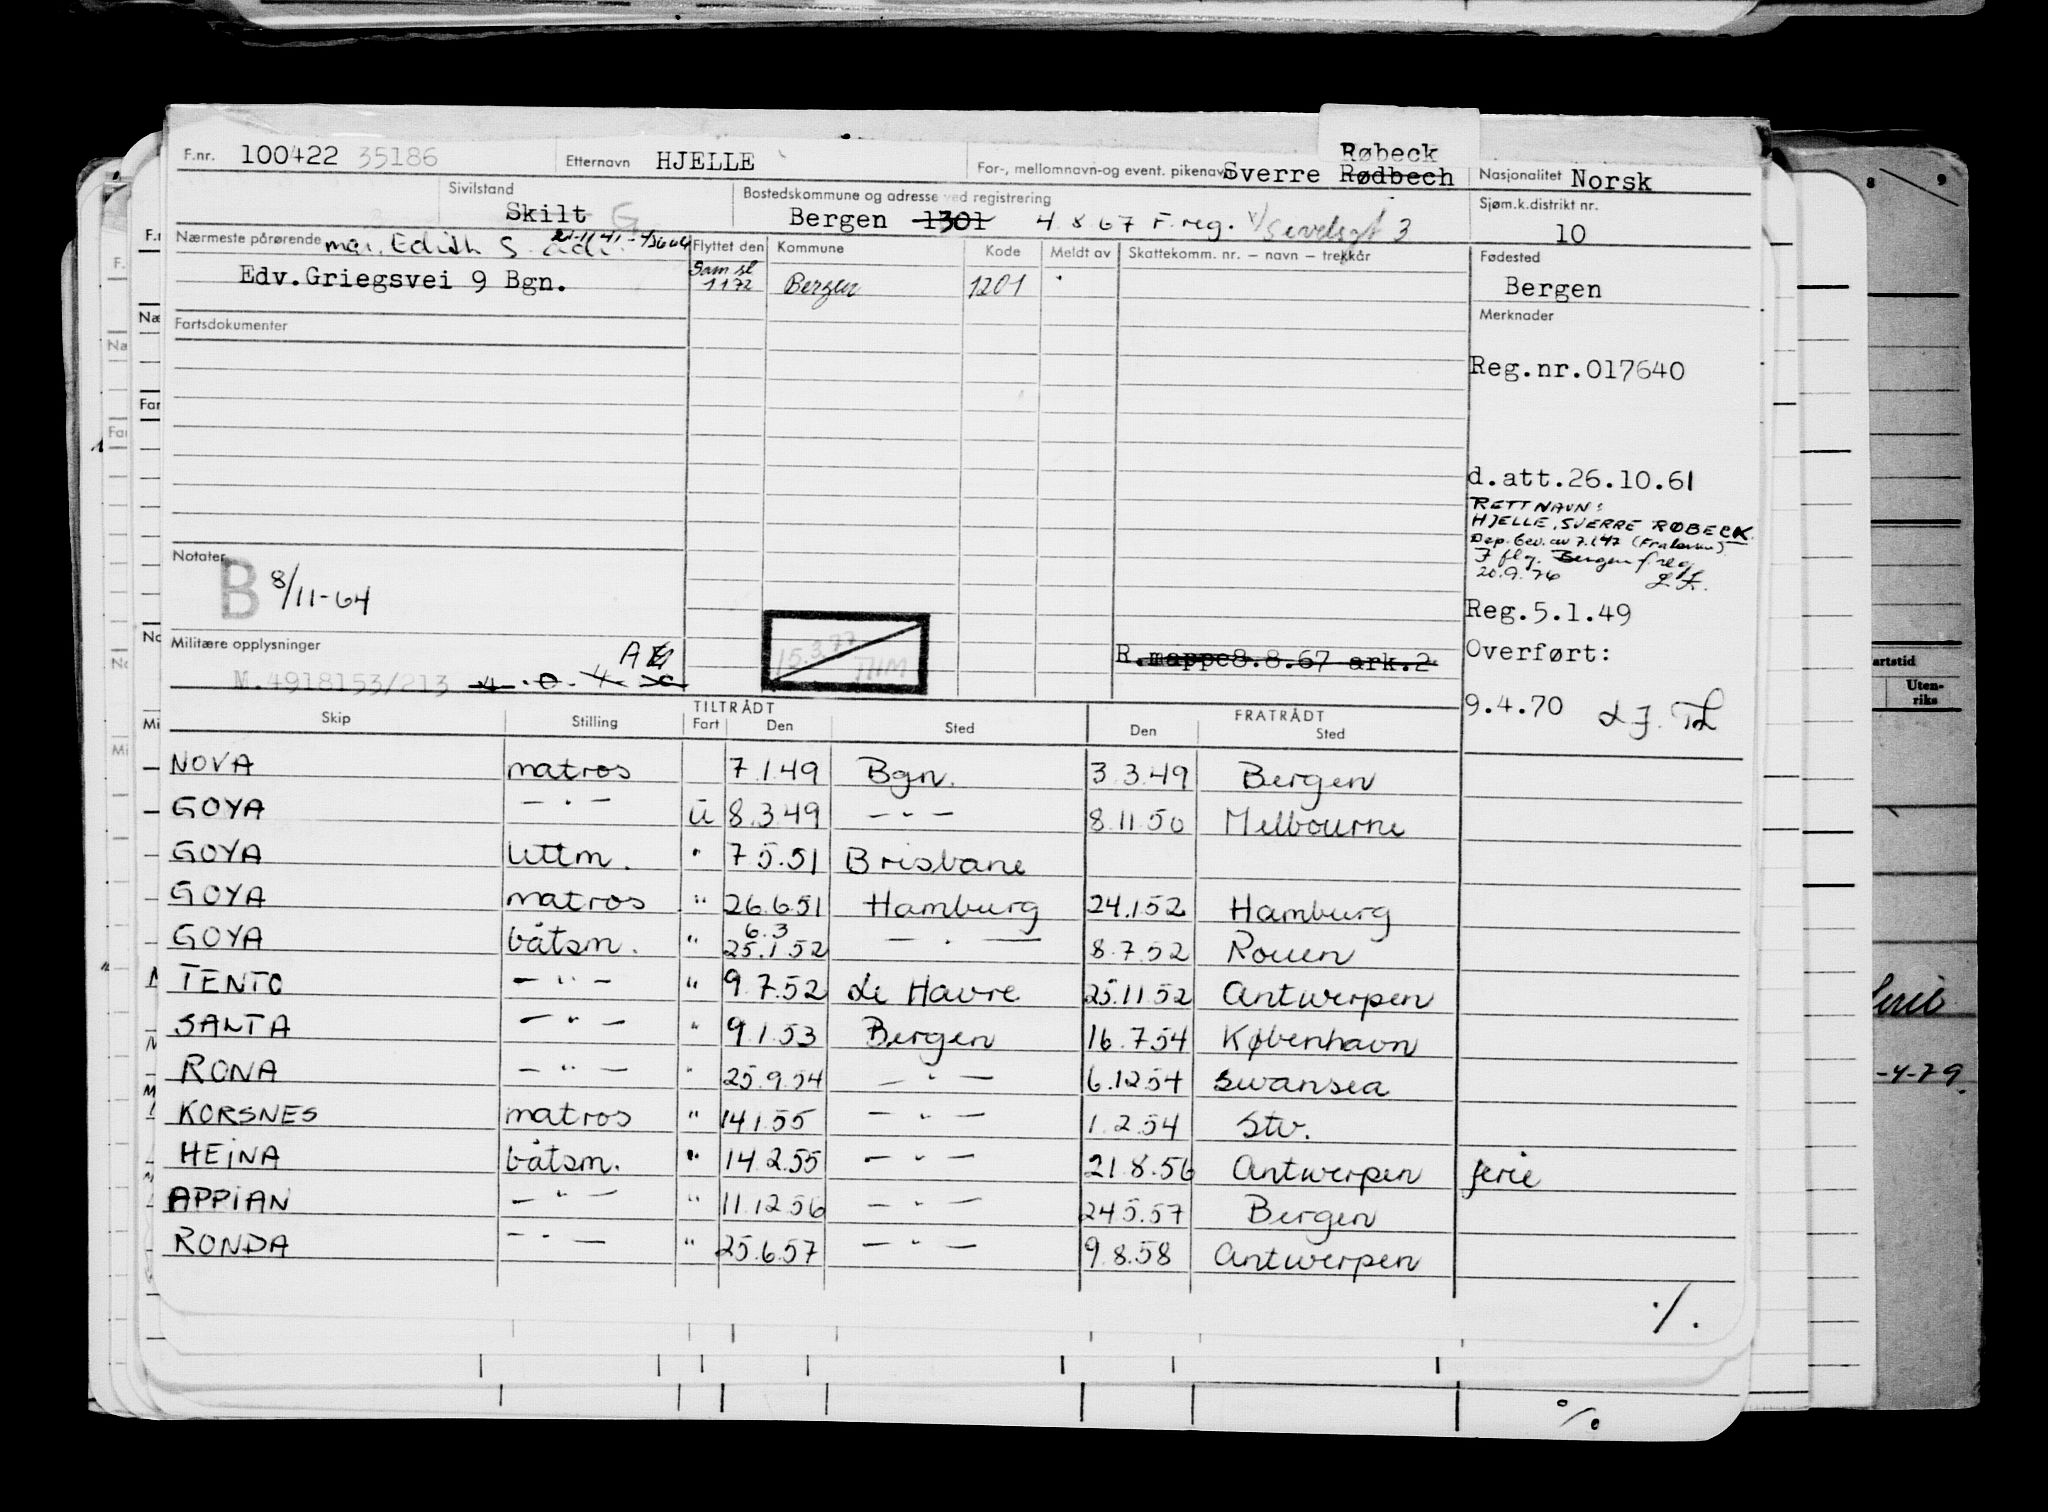 F.nr. 100422 35186 Etternavn HJELLE For-, mellomnavn-og event. pikenavn Sverre Rødbech Røbeck Nasjonalitet Norsk
Sivilstand Skilt G Bostedskommune og adresse ved registrering Bergen 1301 4 8 67 F.reg. Sjøm.k.distrikt nr. 10
Nærmeste pårørende mor. Edith S. Flyttet den Kommune Kode Meldt av Skattekomm. nr. – navn – trekkår Fødested
Edv.Griegsvei 9 Bgn. Sam sl 1172 Bergen 1201 Bergen
Fartsdokumenter Merknader
Reg.nr.017640
d.att.26.10.61
RETT NAVN:
HJELLE, SVERRE RØBECK.
Dep. bev. av 7.1.47
J flg. Bergen f reg
20.9.76 L F.
Notater
B 8/11-64
Reg.5.1.49
Militære opplysninger
M.4918153/213
15.3.77 THM
R.mappe8.8.67 ark.2
Overført:
9.4.70
Skip Stilling TILTRÅDT Fart Den Sted FRATRÅDT Den Sted
NOVA matros 7.1.49 Bgn. 3.3.49 Bergen
GOYA — " — u 8.3.49 — " — 8.11.50 Melbourne
GOYA lettm. " 7.5.51 Brisbane
GOYA matros " 26.6.51 Hamburg 24.1.52 Hamburg
GOYA båtsm. " 6.3 25.1.52 — " — 8.7.52 Rouen
TENTO — " — " 9.7.52 Le Havre 25.11.52 Antwerpen
SALTA — " — " 9.1.53 Bergen 16.7.54 København
RONA — " — " 25.9.54 — " — 6.12.54 Swansea
KORSNES matros " 14.1.55 — " — 1.2.54 Stv.
HEINA båtsm. " 14.2.55 — " — 21.8.56 Antwerpen ferie
APPIAN — " — " 11.12.56 — " — 24.5.57 Bergen
RONDA — " — " 25.6.57 — " — 9.8.58 Antwerpen
./.
%
8 9
artstid
Uten-
riks
-4-79.